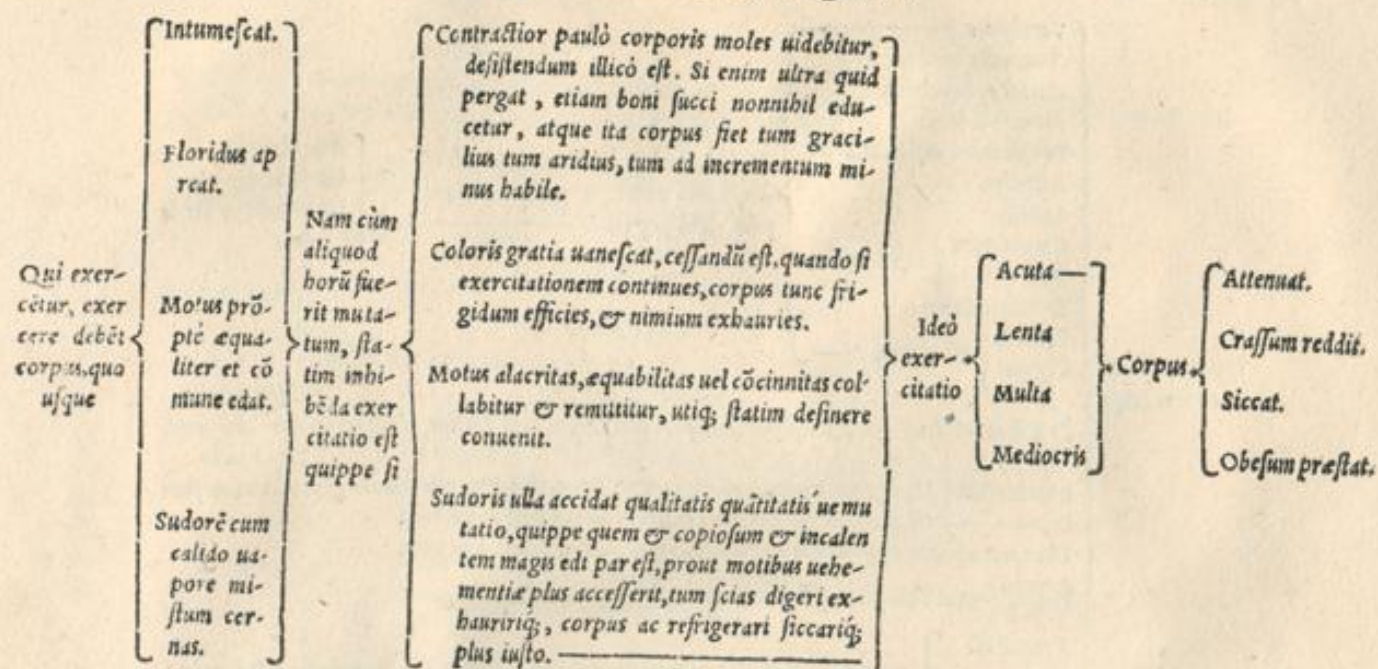 Qui exer-
cētur, exer
cere debēt
corpus, quo
uſque
Intumeſcat.
Floridus ap
reat.
Motus prō-
ptè æqua-
liter et cō
mune edat.
Sudorē cum
calido ua-
pore mi-
ſtum cer-
nas.
Nam cùm
aliquod
horū fue-
rit muta-
tum, ſta-
tim inhi-
bēda exer
citatio eſt
quippe ſi
Contractior paulò corporis moles uidebitur,
deſiſtendum illicò eſt. Si enim ultra quid
pergat, etiam boni ſucci nonnihil edu-
cetur, atque ita corpus fiet tum graci-
lius tum aridius, tum ad incrementum mi-
nus habile.
Coloris gratia uaneſcat, ceſſandū eſt. quando ſi
exercitationem continues, corpus tunc fri-
gidum efficies, & nimium exhauries.
Motus alacritas, æquabilitas uel cōcinnitas col-
labitur & remittitur, utiq; ſtatim deſinere
conuenit.
Sudoris ulla accidat qualitatis quātitatis´ue mu
tatio, quippe quem & copioſum & incalen
tem magis edi par eſt, prout motibus uehe-
mentiæ plus acceſſerit, tum ſcias digeri ex-
hauririq;, corpus ac refrigerari ſiccariq;
plus iuſto.
Ideò
exer-
citatio
Acuta
Lenta
Multa
Mediocris
Corpus
Attenuat.
Craſſum reddit.
Siccat.
Obeſum præſtat.